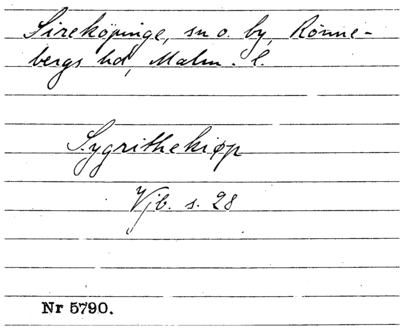 Sireköpinge, sn o. by, Rönne-
bergs hd, Malm. l.
Sygrithekiøp
Vjb. s. 28
Nr 5790.